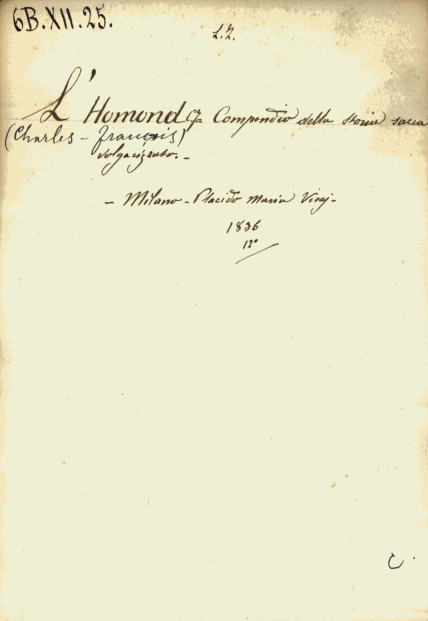 6B.XII.25.
L'Homond Compendio della storia sacra
(Charles-François)
volgarizzato.-
- Milano - Placido Maria Visaj -
1836
12º
C.